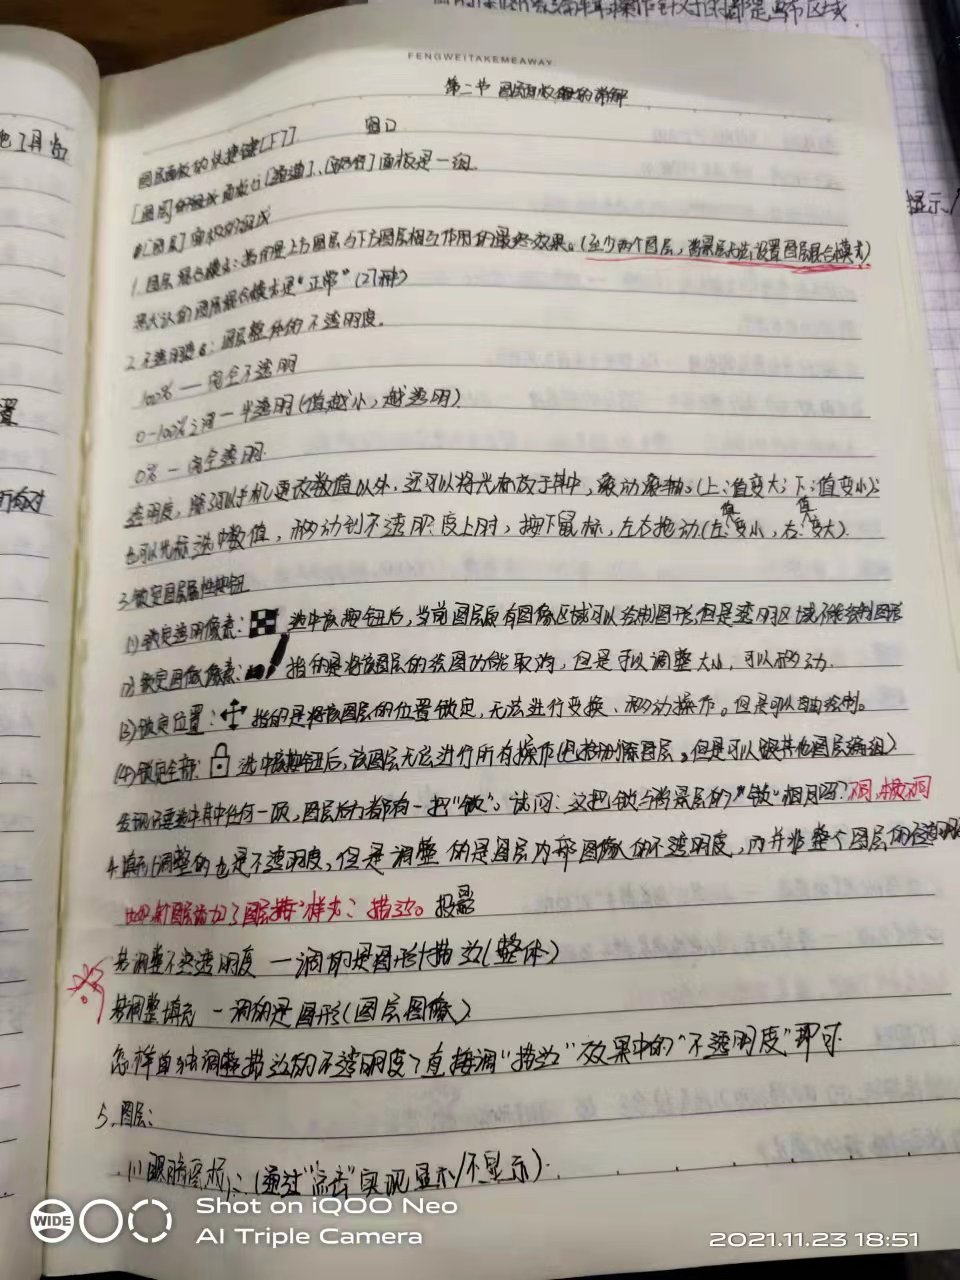 FENGWEITAKEMEAWAY
第二节 图层面板组的详解
窗口
图层面板的快捷键[F7]
[图层]面板与[通道]、[路径]面板是一组
[图层]面板的组成
1.图层混合模式:指的是上方图层与下方图层相互作用的最终效果。(至少两个图层,背景层无法设置图层混合模式)
默认的图层混合模式是"正常"(27种)
2.不透明度:图层整体的不透明度。
100%—完全不透明
0-100%之间—半透明(值越小,越透明)
0%—完全透明.
透明度,除了可以手动更改数值以外,还可以将光标放于其中,滚动滚轴。(上:值变大;下:值变小);
也可以光标选中数值,移动到不透明度上时,按下鼠标,左右拖动(左:值变小,右:值变大).
3.锁定图层属性按钮
(1)锁定透明像素: 选中该按钮后,当前图层原有图像区域可以绘制图形,但是透明区域不能绘制图形
(2)锁定图像像素: 指的是将该图层的绘图功能取消,但是可以调整大小,可以移动.
(3)锁定位置: 指的是将该图层的位置锁定,无法进行变换、移动操作。但是可以自由绘制。
(4)锁定全部: 选中该按钮后,该图层无法进行所有操作(包括删除图层。但是可以跟其他图层编组)
发现只要选中其中任何一项,图层后方都有一把"锁"。试问:这把锁与背景层的"锁"相同吗?不同
4.填充:调整的也是不透明度,但是调整的是图层内部图像的不透明度,而并非整个图层的
比如:图层添加了图层样式:描边。投影
若调整不透明度—调的是图形+描边(整体)
若调整填充—调的是图形(图层图像)
怎样单独调整描边的不透明度?直接调"描边"效果中的"不透明度"即可.
5.图层:
(1)眼睛图标:(通过"点击"实现显示/不显示).
WIDE
Shot on iQOO Neo
AI Triple Camera
2021.11.23 18:51